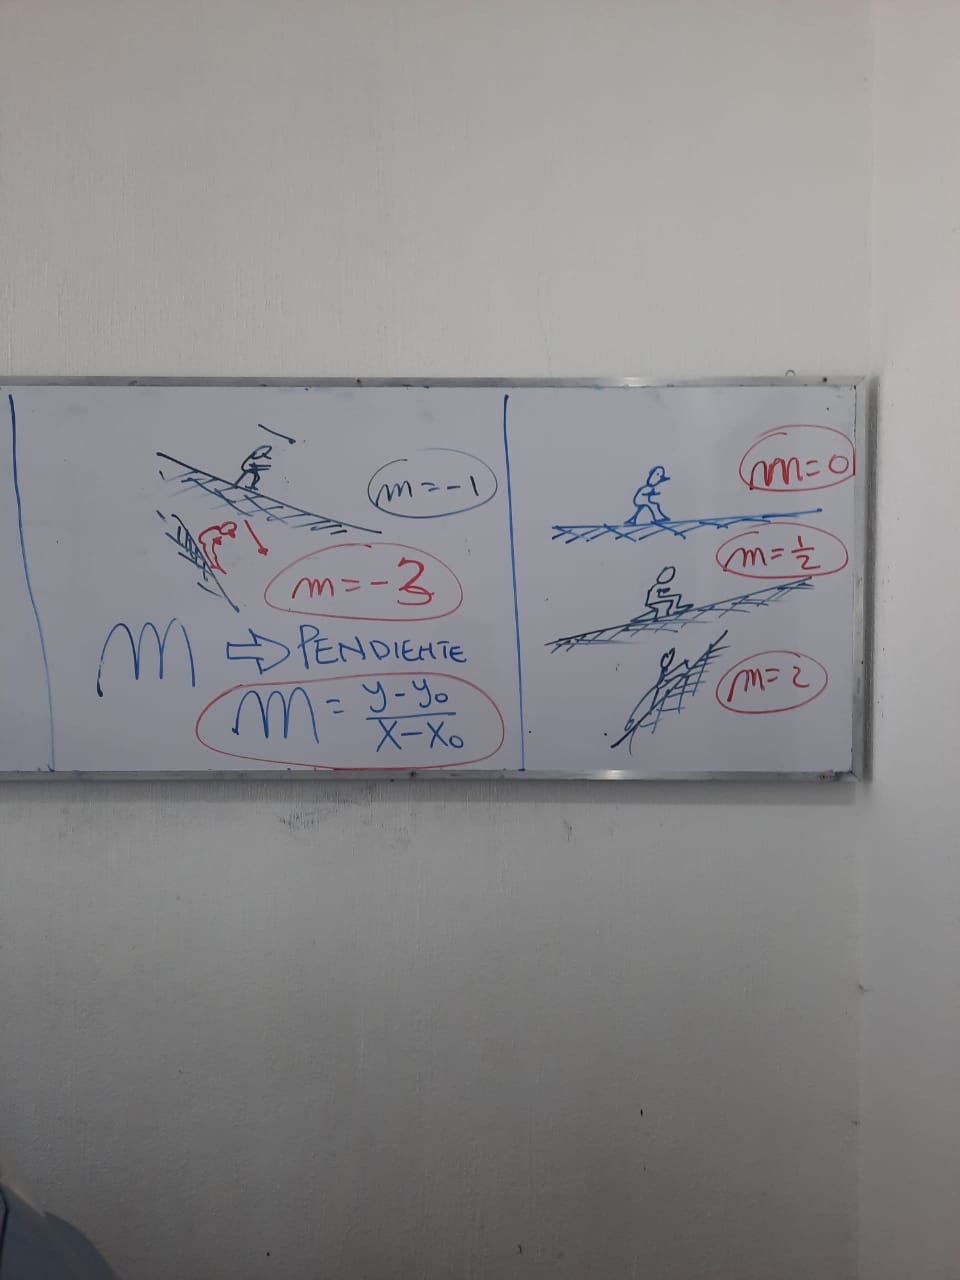 m=-1
m=-3
m ⇒ PENDIENTE
m = y-y₀ / x-x₀
m=0
m=½
m=2